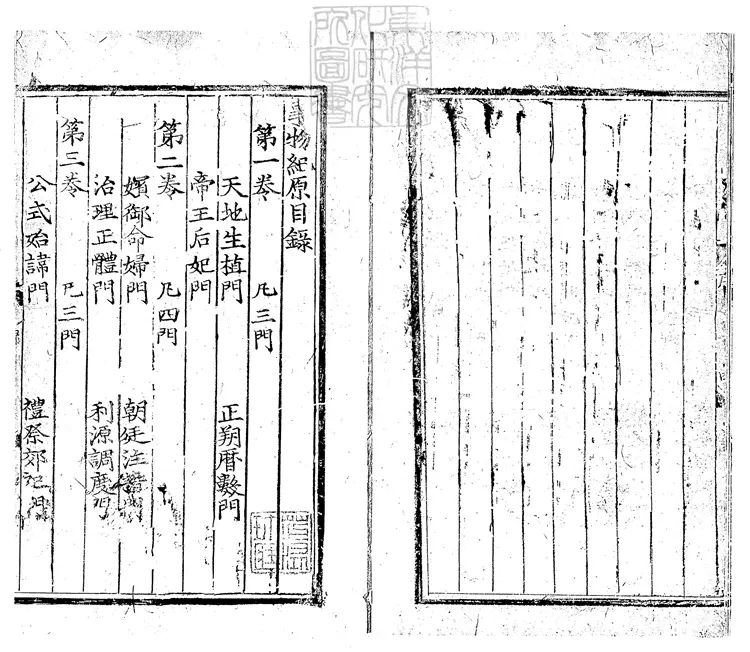 事物紀原目錄
第一卷 凡三門
天地生植門 正朔曆數門
帝王后妃門
第二卷 凡四門
嬪御命婦門 朝廷注
治理正體門 利源調度門
第三卷 凡三門
公式始諱門 禮祭郊祀門